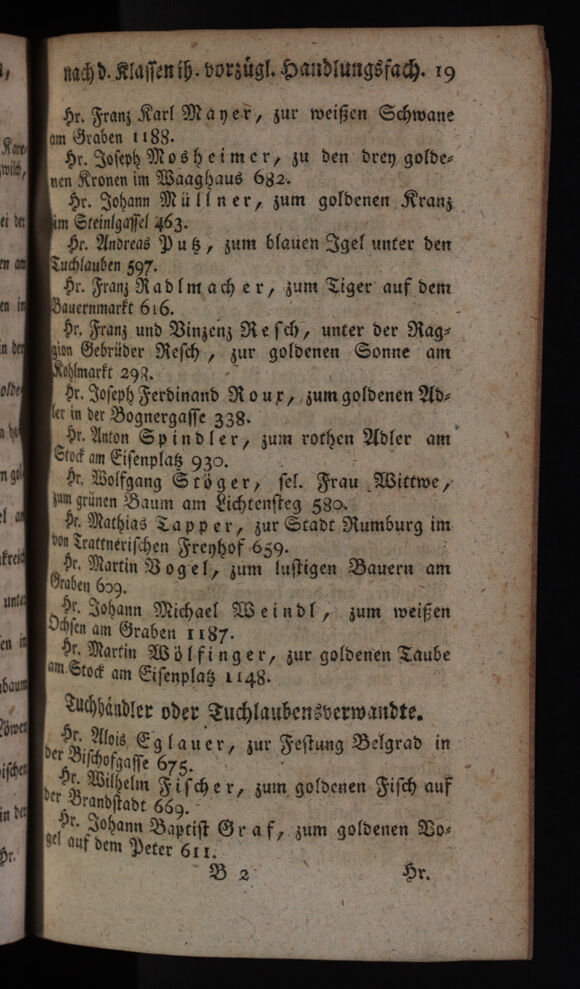 nach d. Klassen ih. vorzügl. Handlungsfach. 19
Hr. Franz Karl Mayer, zur weißen Schwane
am Graben 1188.
Hr. Joseph Mosheimer, zu den drey golde-
nen Kronen im Waaghaus 682.
Hr. Johann Müllner, zum goldenen Kranz
im Steinlgassel 463.
Hr. Andreas Putz, zum blauen Igel unter den
Tuchlauben 597.
Hr. Franz Radlmacher, zum Tiger auf dem
Bauernmarkt 616.
Hr. Franz und Vinzenz Resch, unter der Rag-
gion Gebrüder Resch, zur goldenen Sonne am
Kohlmarkt 298.
Hr. Joseph Ferdinand Roux, zum goldenen Ad-
ler in der Bognergasse 338.
Hr. Anton Spindler, zum rothen Adler am
Stock am Eisenplatz 930.
Hr. Wolfgang Stöger, sel. Frau Wittwe,
zum grünen Baum am Lichtensteg 580.
Hr. Mathias Tapper, zur Stadt Rumburg im
von Trattnerischen Freyhof 659.
Hr. Martin Vogel, zum lustigen Bauern am
Graben 609.
Hr. Johann Michael Weindl, zum weißen
Ochsen am Graben 1187.
Hr. Martin Wölfinger, zur goldenen Taube
am Stock am Eisenplatz 1148.
Tuchhändler oder Tuchlaubensverwandte.
Hr. Alois Eglauer, zur Festung Belgrad in
der Bischofgasse 675.
Hr. Wilhelm Fischer, zum goldenen Fisch auf
der Brandstadt 669.
Hr. Johann Baptist Graf, zum goldenen Vo-
gel auf dem Peter 611.
B 2 Hr.